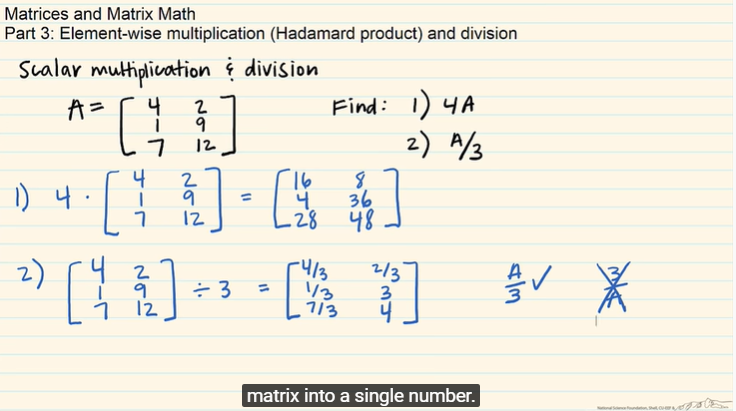 Matrices and Matrix Math
Part 3: Element-wise multiplication (Hadamard product) and division
Scalar multiplication & division
A = [ 4 2 Find: 1) 4A
1 9
7 12 ] 2) A/3
1) 4 · [ 4 2 ] = [ 16 8 ]
1 9 4 36
7 12 28 48
2) [ 4 2 ] ÷ 3 = [ 4/3 2/3 ] A/3 ✓ 3/A
1 9 1/3 3
7 12 7/3 4
matrix into a single number.